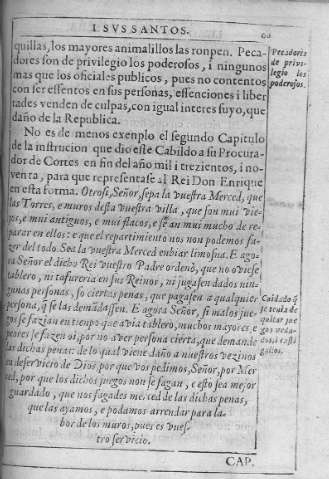 I SVS SANTOS.
quillas, los mayores animalillos las ronpen. Peca-
dores son de privilegio los poderosos, i ningunos
mas que los oficiales publicos, pues no contentos
con ser essentos en sus personas, essenciones i liber
tades venden de culpas, con igual interes suyo, que
daño de la Republica.
No es de menos exenplo el segundo Capitulo
de la instrucion que dio este Cabildo a su Procura-
dor de Cortes en fin del año mil i trezientos, i no-
venta, para que representase al Rei Don Enrique
en esta forma. Otrosi, Señor, sepa la vuestra Merced, que
las Torres, e muros desta vuestra villa, que son mui vie-
jos, e mui antiguos, e mui flacos, e se an mui mucho de re-
parar en ellos: e que el repartimiento nos non podemos fa-
zer del todo. Sea la vuestra Merced enbiar limosna. E ago-
ra Señor el dicho Rei vuestro Padre ordenò, que no oviese
tablero, ni tafureria en sus Reinos, ni jugasen dados nin-
gunas personas, so ciertas penas, que pagasen a qualquier
persona, q̃ se las demãdasen. E agora Señor, si malos jue-
gos se fazian en tienpo que avia tablero, muchos mayores e
peores se fazen oi, por no aver persona cierta, que demande
las dichas penas: de lo qual viene daño a nuestros vezinos
en deservicio de Dios, por que vos pedimos, Señor, por Mer
ced, por que los dichos juegos non se fagan, e esto sea mejor
guardado, que nos fagades merced de las dichas penas,
que las ayamos, e podamos arrendar para la-
bor de los muros, pues es vues-
tro servicio.
CAP.
Pecadores
de privi-
legio los
poderosos.
Cuidado q̃
se tenia de
quitar jue-
gos veda-
dos, i